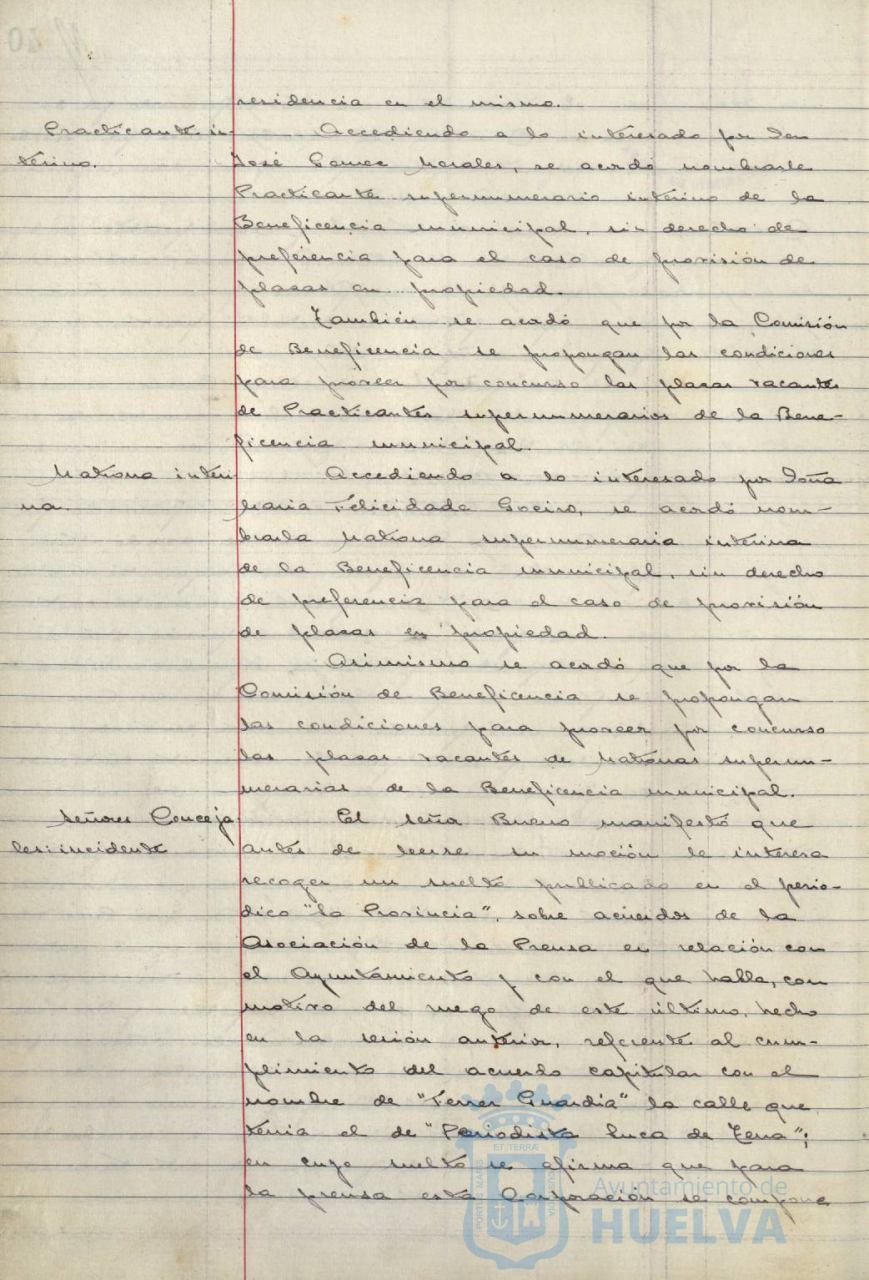 residencia en el mismo.
Practicante in-
terino.
Accediendo a lo interesado por Don
José Gomez Morales, se acordó nombrarle
Practicante supernumerario interino de la
Beneficencia municipal, sin derecho de
preferencia para el caso de provisión de
plazas en propiedad.
También se acordó que por la Comisión
de Beneficencia se propongan las condiciones
para proveer por concurso las plazas vacantes
de Practicantes supernumerarios de la Bene-
ficencia municipal.
Matrona interi-
na.
Accediendo a lo interesado por Doña
Maria Felicidade Goeiro, se acordó nom-
brarla Matrona supernumeraria interina
de la Beneficencia municipal, sin derecho
de preferencia para el caso de provisión
de plazas en propiedad.
Asimismo se acordó que por la
Comisión de Beneficencia se propongan
las condiciones para proveer por concurso
las plazas vacantes de Matronas supernu-
merarias de la Beneficencia municipal.
Señores Conceja
les: incidente
El señor Bueno manifestó que
antes de leerse su moción le interesa
recoger un suelto publicado en el perio-
dico "La Provincia", sobre acuerdos de la
Asociación de la Prensa en relación con
el Ayuntamiento y con el que habla, con
motivo del ruego de este último, hecho
en la sesión anterior, referente al cum-
plimiento del acuerdo capitular con el
nombre de "Ferrer Guardia" la calle que
tenia el de "Periodista Luca de Tena";
en cuyo suelto se afirma que para
la prensa esta Corporación se compone
Ayuntamiento de
HUELVA